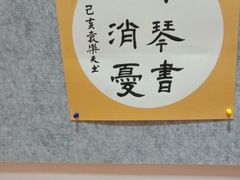 琴書
消憂
己亥袁樂天书